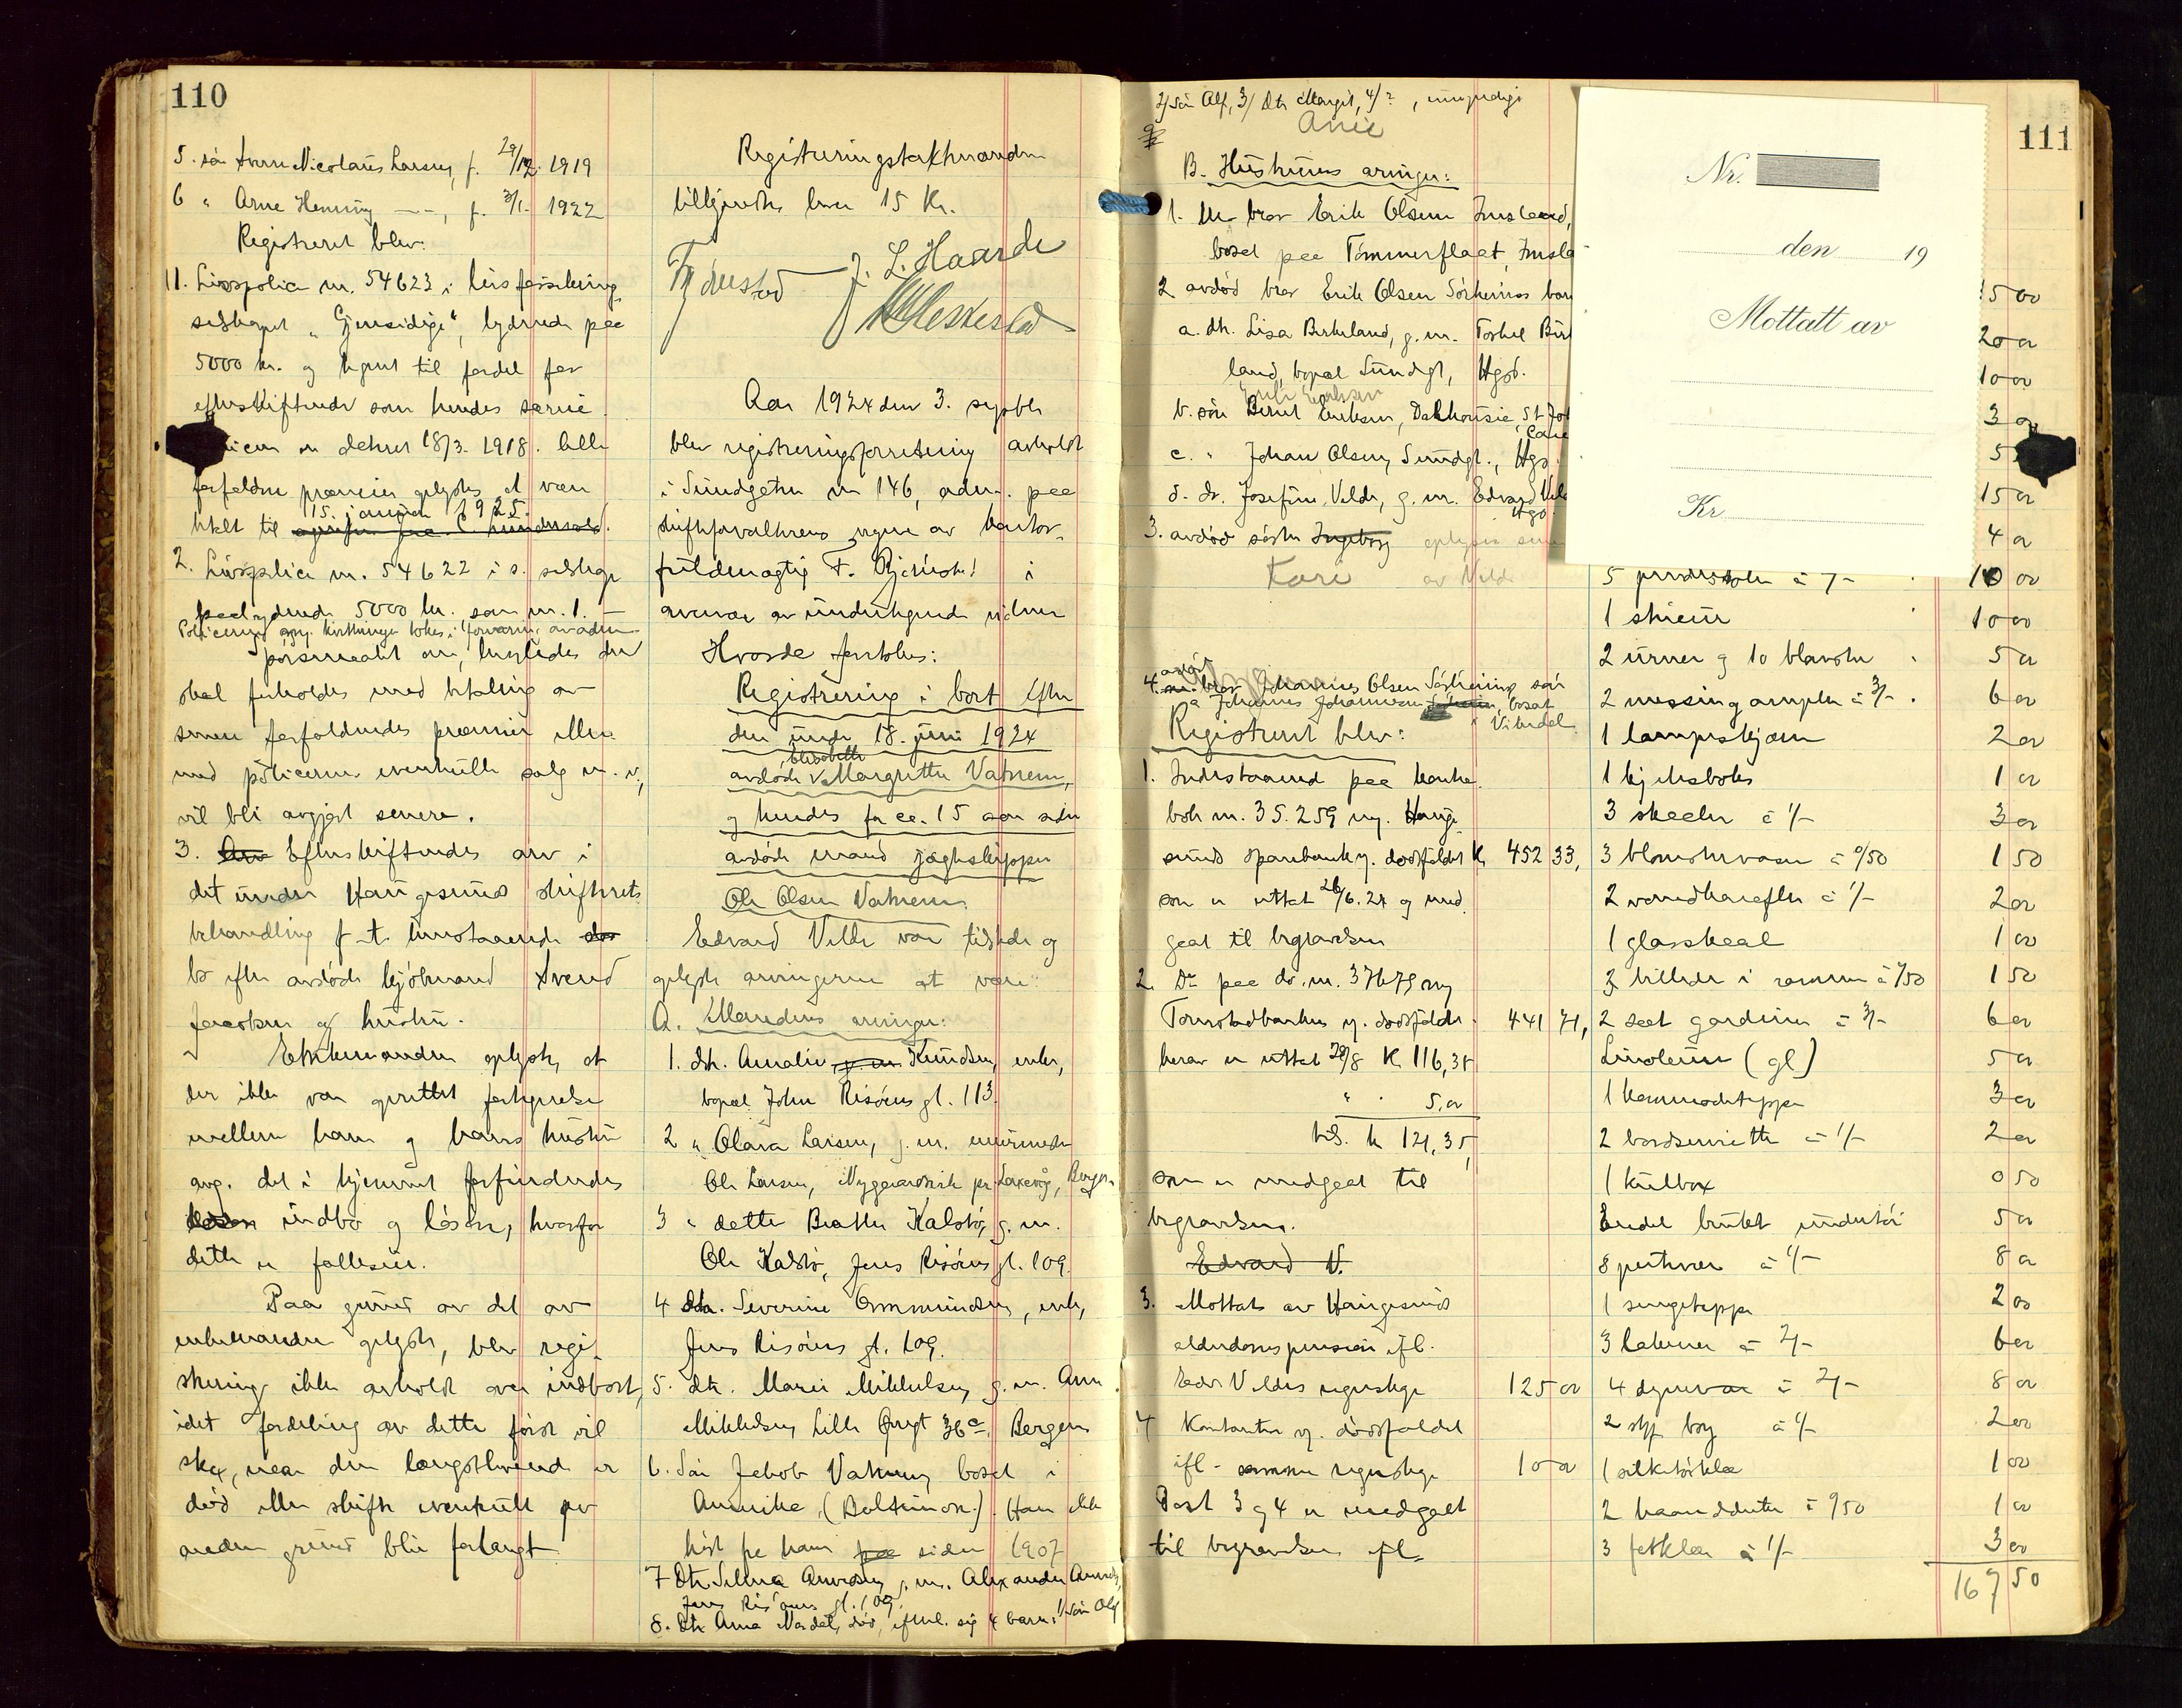 110
5. sön Sverre Nicolaus Larsen, f. 29/12. 1919
6 " Arne Henning — " —, f. 3/1. 1922
Registreret blev:
1. Livspolice nr. 54623 i livsforsikring
selskapet "Gjensidige", lydende paa
5000 kr. og tegnet til fordel for
efterskiftende som hendes særeie.
er datert 18/3. 1918. Alle
forfaldne præmier oplystes at være
betalt til 15. januar 1925.
2. Livspolice nr. 54622 i s. selskap
paalydende 5000 kr. som nr. 1. —
skal forholdes med betaling av
senere forfaldende præmier eller
med policerne eventuelle salg m. v.,
vil bli avgjort senere.
3. Efterskiftendes arv i
det under Haugesunds skifterets
behandling f. t. henstaaende
bo efter avdöde kjöbmand Svend
Jacobsen og hustru.
Enkemanden oplyste, at
der ikke var oprettet formue
mellem ham og hans hustru
ang. det i hjemmet forfindendes
indbo og lösöre, hvorfor
dette er fælleseie.
Paa grund av det av
enkemanden oplyste, blev regi-
strering ikke avholdt over indboet,
idet fordeling av dette först vil
ske, naar den længstlevende er
död eller skifte eventuelt av
anden grund blir forlangt.
Registreringstakstmændene
tilkjendtes hver 15 Kr.
J. L. Haarde
Aar 1924 den 3. septbr
blev registreringsforretning avholdt
i Sundgaten nr 146, adm. paa
skifteforvalterens vegne av kontor-
fuldmægtig F. i
nærvær av undertegnede vidner
Hvorda foretokes:
Registrering i boet efter
den unde 18. juni 1924
Elisabeth
avdöde Margrethe Vatnem,
og hendes for ca. 15 aar siden
avdöde mand jægtskipper
Ole Olsen Vatnem.
Edvard Velde var tilstede og
oplyste arvingerne at være:
A. Mandens arvinger:
1. dtr. Amalie Knudsen, enke,
bopæl John Risöens gt. 113.
2 " Olava Larsen, g. m.
Ole Larsen, pr Laxevåg, Bergen
3 " dette Berthe Kalstö, g. m.
Ole Kalstö, Jens Risöens gt. 109.
4 dtr. Severine Ommundsen, enke,
Jens Risöens gt. 109.
5. dtr. Marie Mikkelsen, g. m.
Mikkelsen, Lille 36 c, Bergen
6. Sön Jakob Vatnem, bosat i
Amerika, (Baltimore). Han ikke
hört fra ham siden 1907
7 Dtr. Selma g. m. Alexander
Jens Risöens gt. 109.
8. dtr. Anna død, efterl. sig 4 barn: 1/ sön Olaf
111
2/ sön Alf, 3/ dtr Margit, 4/ ? , umyndige
Anie
B. Hustruens arvinger:
1. bror Erik Olsen Imsland,
bosat paa Tömmerflaat, Imsla
2 avdöd bror Erik Olsen Sörheims barn
a. dtr. Lisa Birkeland, g. m. Torkel Birk
land, bopæl Sundgt., Hgsd.
b. sön Bernt Eriksen, Dalhousie, St Jo
c. " Johan Olsen, Sundgt., Hgs.
d. dr. Josefine Velde, g. m. Edvard Vel
Hgs.
3. avdöd söster Ingeborg oplyses sener
Kari av Velde
4. avdöd bror Johannes Olsen Sörheim, sön
a Johannes Johannesen, bosat
i Vikedal
Registreret blev:
1. Indestaaende paa bank-
bok nr. 35.259 Hauge-
sunds Sparebank v. dödsfaldet Kr 452 33,
som er uttat 26/6. 24 og med-
gaat til begravelsen
2. Do paa do. nr. 37679
v. dödsfaldet 441 71,
herav er uttat 28/8 K 116,35
" " 5,00
tils. kr 121,35,
som er medgaat til
begravelsen.
Edvard V.
3. Mottat av Haugesunds
alderdomspension ifl.
Edv. Veldes regnskap 125 00
4 Kontanter v. dödsfaldet
ifl. samme regnskap 10 00
Post 3 og 4 er medgaat
til begravelsen ifl.
Nr.
den 19
Mottatt av
Kr.
15 00
20 00
10 00
3 00
5
15 00
4 00
5 pindestoler à 2/- 10 00
1 skjenk 10 00
2 urner og 10 blomster 5 00
2 messing ampler à 3/- 6 00
1 lampeskjærm 2 00
1 kjeksboks 1 00
3 skaaler à 1/- 3 00
3 blomstervaser à 0/50 1 50
2 vandkarafler à 1/- 2 00
1 glasskaal 1 00
3 billeder i rammer à 0/50 1 50
2 sæt gardiner à 3/- 6 00
Linoleum (gl) 5 00
1 kommodeteppe 3 00
2 bordservietter à 1/- 2 00
1 kulbox 0 50
Endel brukt undertöi 5 00
8 putevar à 1/- 8 00
1 sengeteppe 2 00
3 lakener à 2/- 6 00
4 dynevar à 2/- 8 00
2 à 1/- 2 00
1 silketörklæ 1 00
2 haandduker à 0/50 1 00
3 à 1/- 3 00
167 50